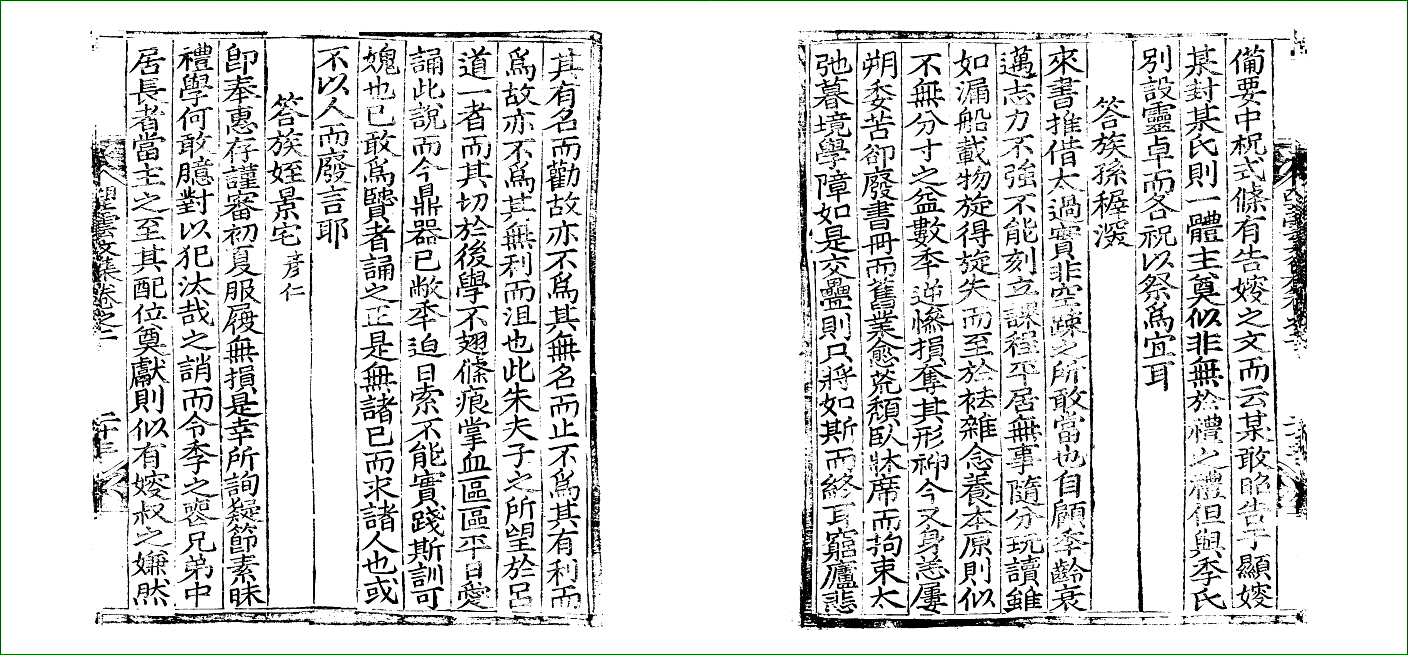 備要中祝式條有告嫂之文而云某敢昭告于顯嫂
某封某氏則一體主奠似非無於禮之禮但與季氏
別設靈卓而各祝以祭爲宜耳
答族孫穉瀅
來書推借太過實非空疎之所敢當也自顧年齡衰
邁志力不強不能刻立課程平居無事隨分玩讀雖
如漏船載物旋得旋失而至於祛雜念養本原則似
不無分寸之益數年逆慘損奪其形神今又身恙屢
朔委苦卻廢書冊而舊業愈荒頹臥牀席而拘束太
弛暮境學障如是交疊則只將如斯而終耳窮廬悲
其有名而勸故亦不爲其無名而止不爲其有利而
爲故亦不爲其無利而沮也此朱夫子之所望於呂
道一者而其切於後學不翅條痕掌血區區平日愛
誦此說而今鼎器已敝年迫日索不能實踐斯訓可
媿也已敢爲賢者誦之正是無諸已而求諸人也或
不以人而廢言耶
答族姪景宅 彦仁
卽奉惠存謹審初夏服履無損是幸所詢疑節素昧
禮學何敢臆對以犯汰哉之誚而令季之喪兄弟中
居長者當主之至其配位奠獻則似有嫂叔之嫌然
望雲文集卷之二
二十三